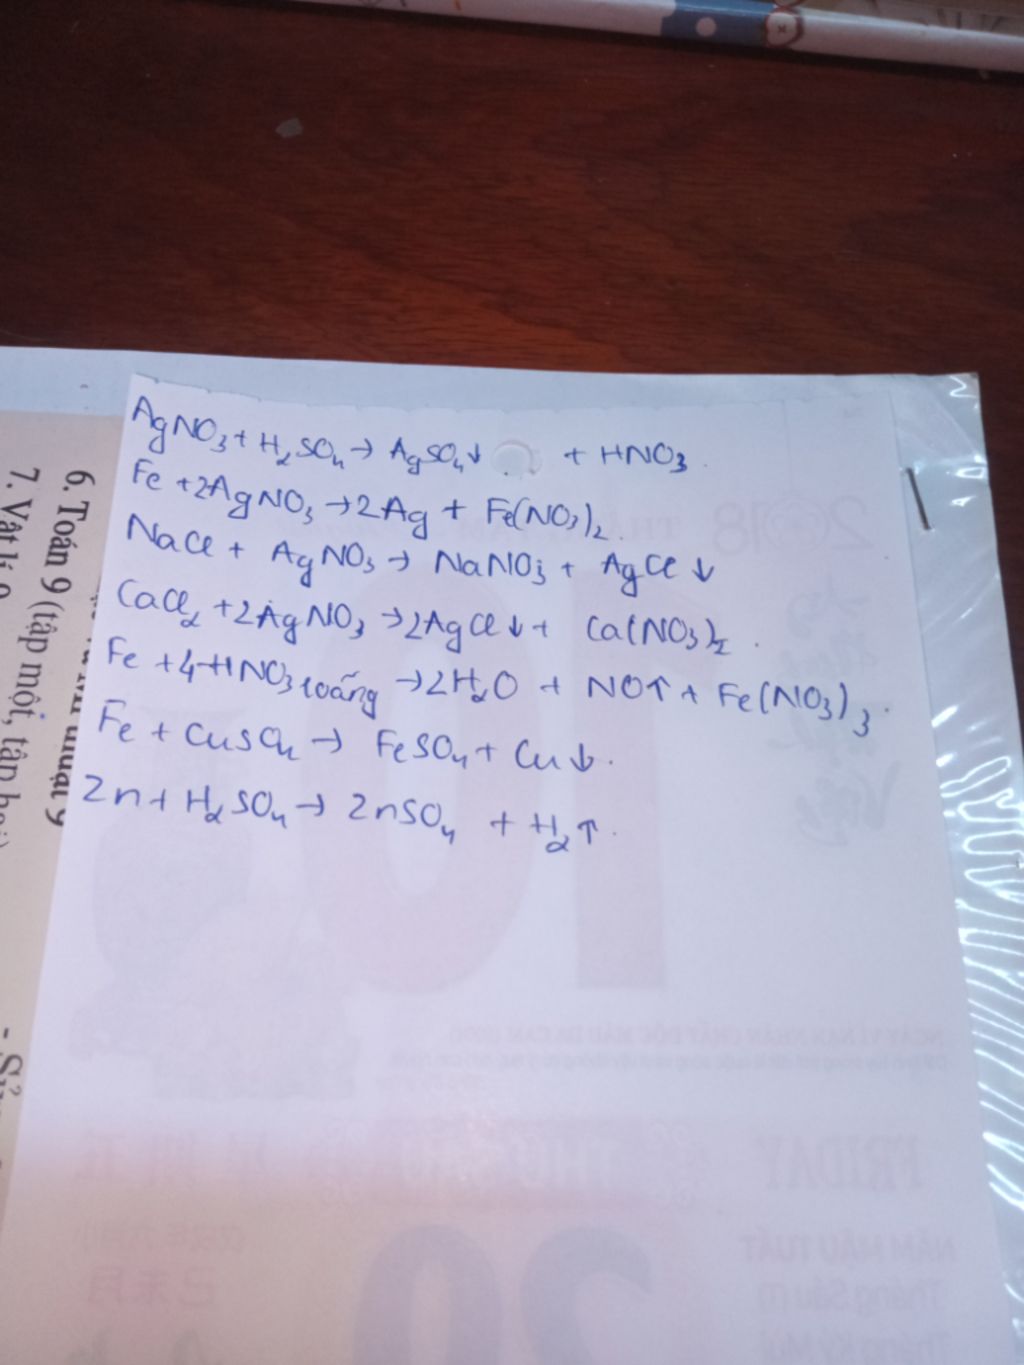 AgNO₃ + H₂SO₄ → AgSO₄↓ + HNO₃.
Fe + 2AgNO₃ → 2Ag + Fe(NO₃)₂.
NaCl + AgNO₃ → NaNO₃ + AgCl ↓
CaCl₂ + 2AgNO₃ → 2AgCl↓ + Ca(NO₃)₂.
Fe + 4HNO₃ loãng → 2H₂O + NO↑ + Fe(NO₃)₃.
Fe + CuSO₄ → FeSO₄ + Cu↓.
Zn + H₂SO₄ → ZnSO₄ + H₂↑.
6. Toán 9 (tập một, tập hai)
7. Vật lí 9
2018
10
FRIDAY
NĂM MẬU TUẤT
20